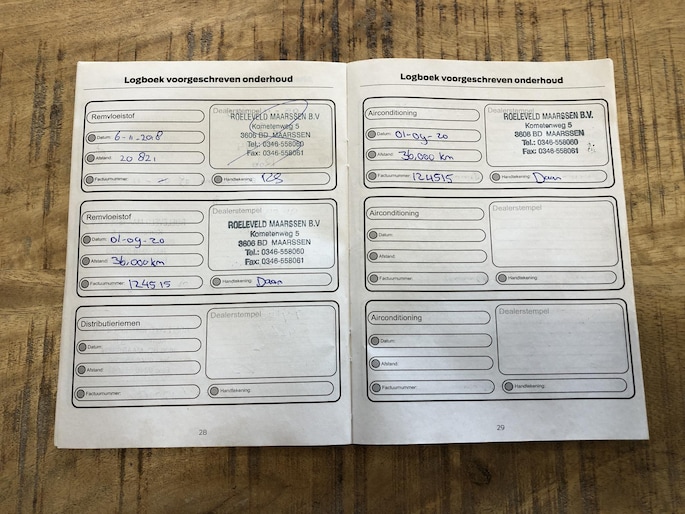 Logboek voorgeschreven onderhoud
Remvloeistof
Datum: 6-11-2018
Afstand: 20 821
Factuurnummer:
Dealerstempel
ROELEVELD MAARSSEN B.V
Kometenweg 5
3606 BD MAARSSEN
Tel.: 0346-558060
Fax: 0346-558061
Handtekening:
Remvloeistof
Datum: 01-09-20
Afstand: 36.000 km
Factuurnummer: 124515
Dealerstempel
ROELEVELD MAARSSEN B.V
Kometenweg 5
3606 BD MAARSSEN
Tel.: 0346-558060
Fax: 0346-558061
Handtekening: Daan
Distributieriemen
Datum:
Afstand:
Factuurnummer:
Dealerstempel
Handtekening:
28
Logboek voorgeschreven onderhoud
Airconditioning
Datum: 01-09-20
Afstand: 36.000 km
Factuurnummer: 124515
Dealerstempel
ROELEVELD MAARSSEN B.V.
Kometenweg 5
3606 BD MAARSSEN
Tel.: 0346-558060
Fax: 0346-558061
Handtekening: Daan
Airconditioning
Datum:
Afstand:
Factuurnummer:
Dealerstempel
Handtekening:
Airconditioning
Datum:
Afstand:
Factuurnummer:
Dealerstempel
Handtekening:
29